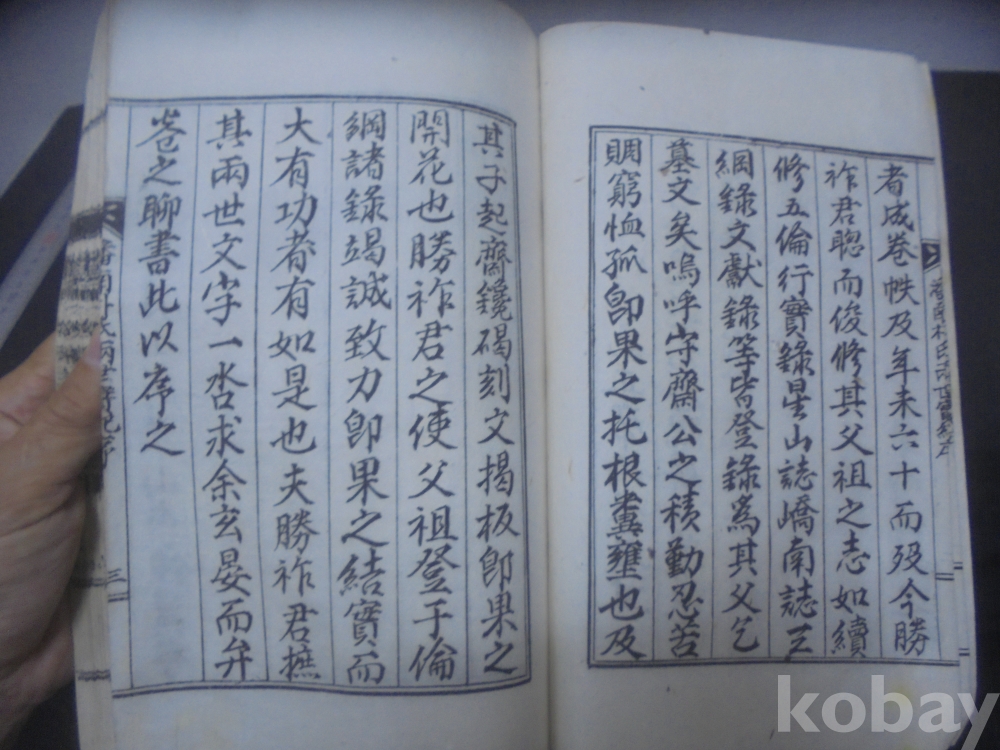 者成卷帙及年未六十而歿今勝
祚君聰而俊修其父祖之志如續
修五倫行實錄星山誌嶠南誌三
綱錄文獻錄等皆登錄爲其父乞
墓文矣嗚呼守齋公之積勤忍苦
賙窮恤孤卽果之托根糞壅也及
其子起齋鑱碣刻文揭板卽果之
開花也勝祚君之使父祖登于倫
綱諸錄竭誠致力卽果之結實而
大有功者有如是也夫勝祚君摭
其兩世文字一呇求余玄晏而弁
卷之聊書此以序之
三
kobay